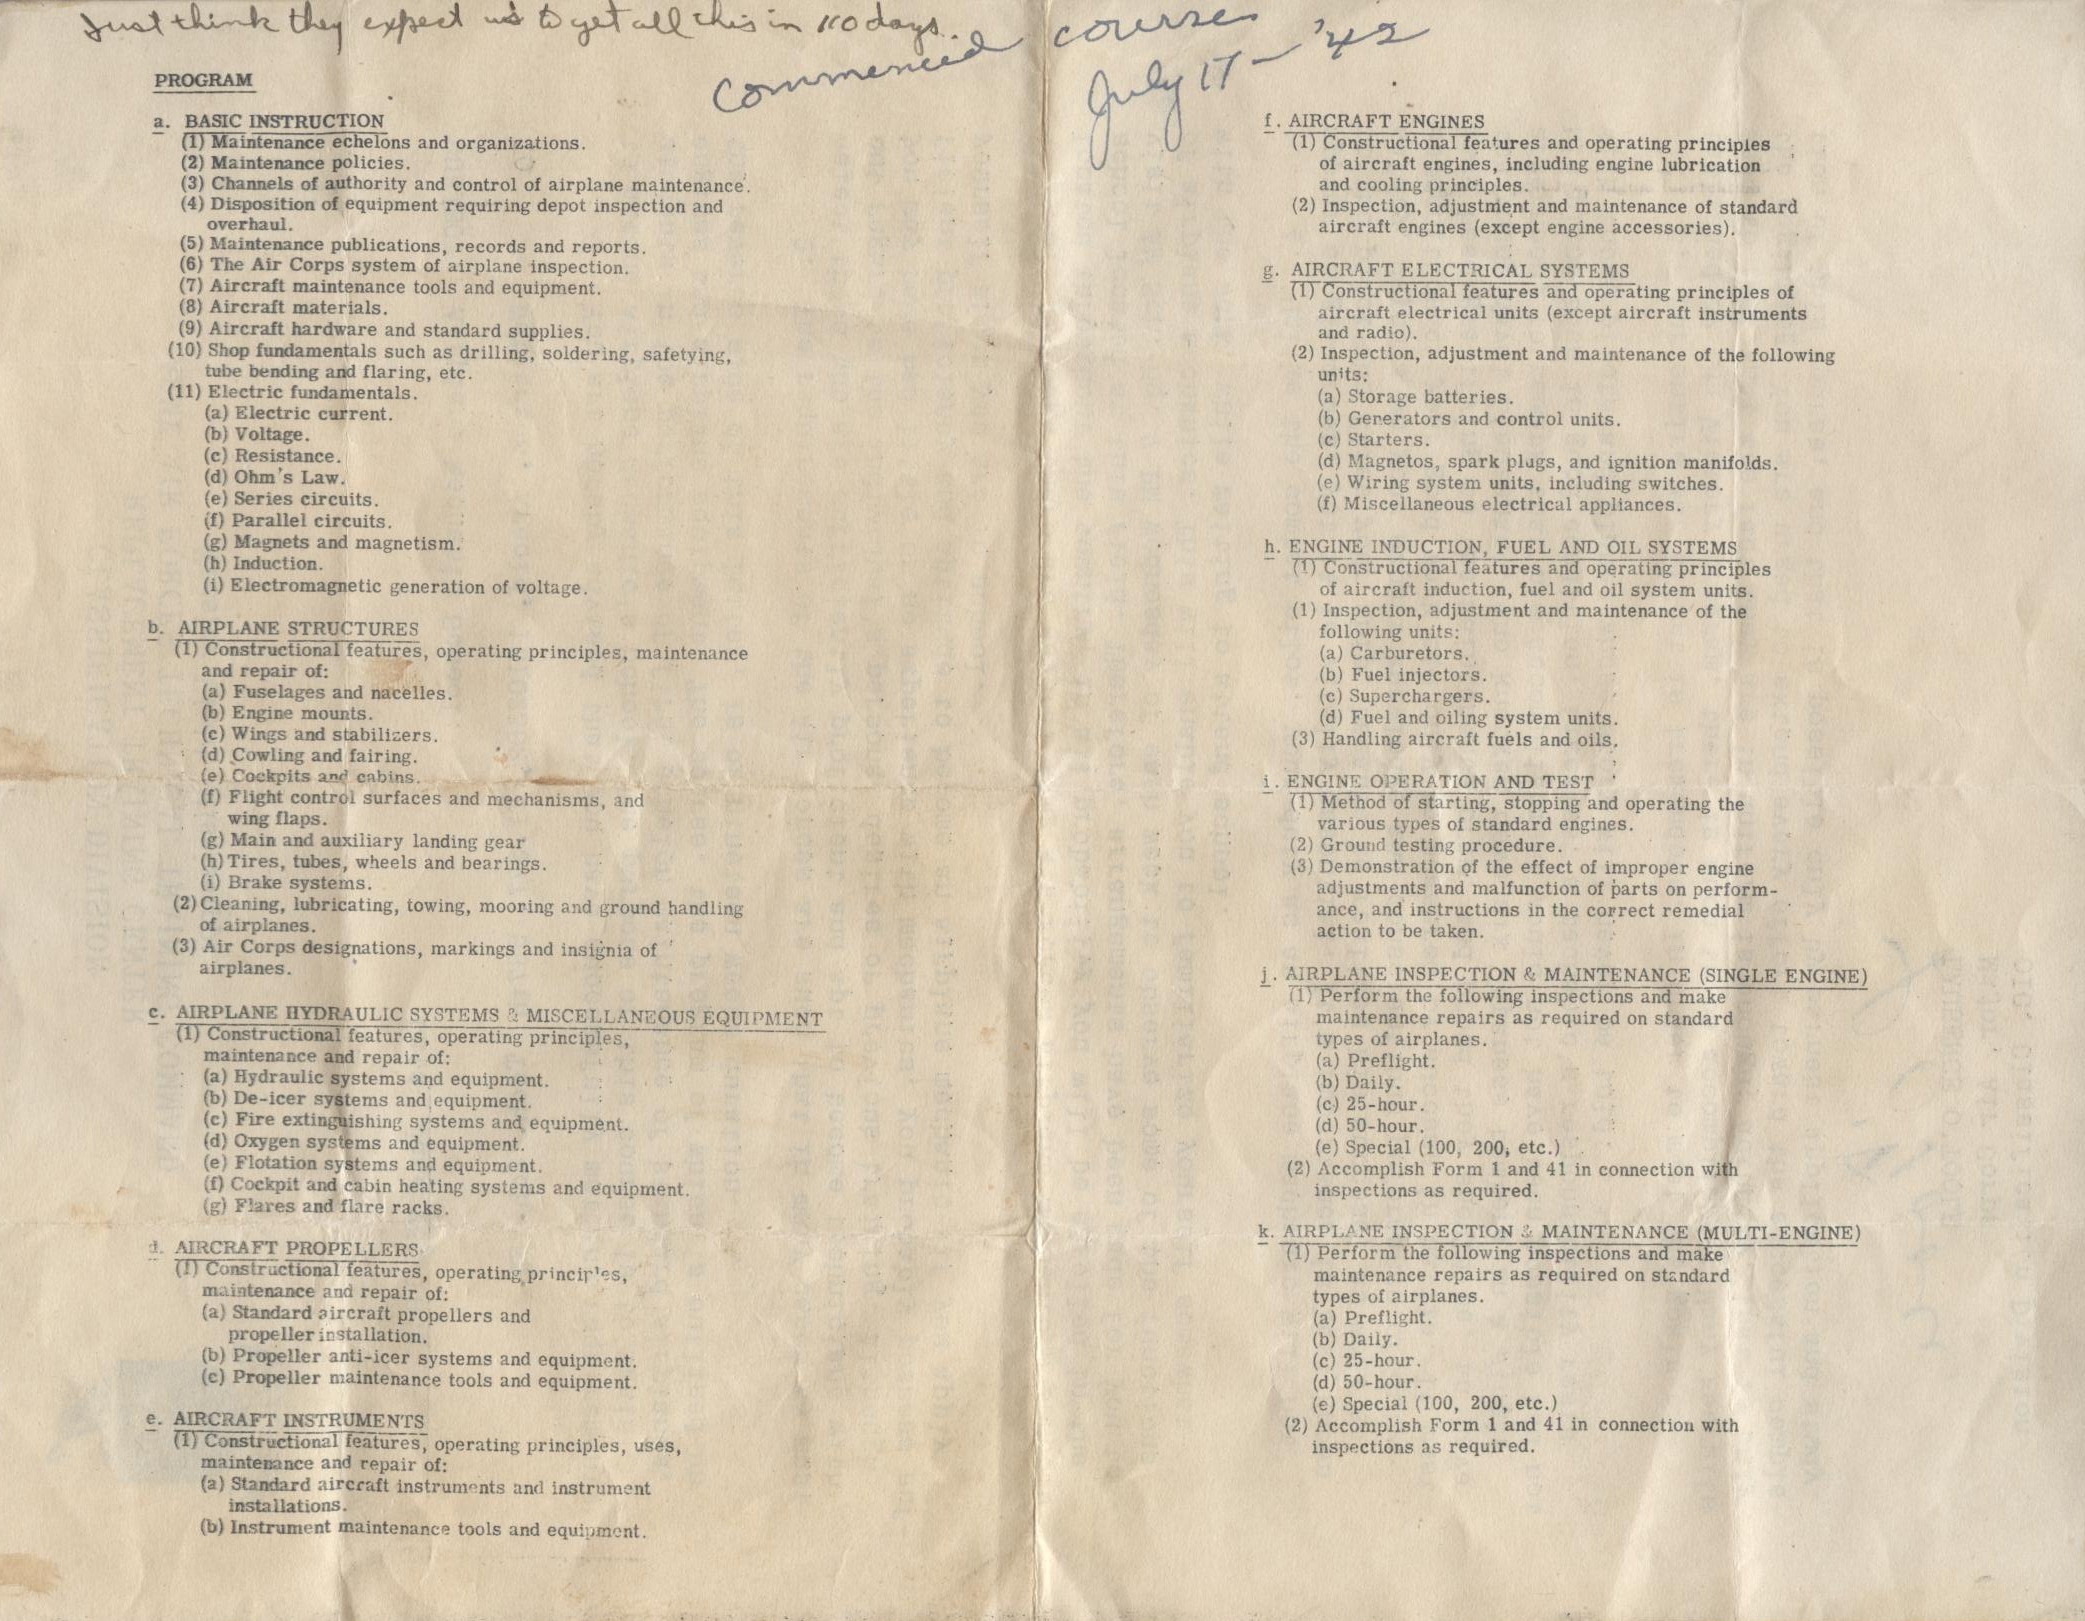 Just think they expect us to get all this in 110 days.
commenced course
July 17 - '42
PROGRAM
a. BASIC INSTRUCTION
(1) Maintenance echelons and organizations.
(2) Maintenance policies.
(3) Channels of authority and control of airplane maintenance.
(4) Disposition of equipment requiring depot inspection and
overhaul.
(5) Maintenance publications, records and reports.
(6) The Air Corps system of airplane inspection.
(7) Aircraft maintenance tools and equipment.
(8) Aircraft materials.
(9) Aircraft hardware and standard supplies.
(10) Shop fundamentals such as drilling, soldering, safetying,
tube bending and flaring, etc.
(11) Electric fundamentals.
(a) Electric current.
(b) Voltage.
(c) Resistance.
(d) Ohm's Law.
(e) Series circuits.
(f) Parallel circuits.
(g) Magnets and magnetism.
(h) Induction.
(i) Electromagnetic generation of voltage.
b. AIRPLANE STRUCTURES
(1) Constructional features, operating principles, maintenance
and repair of:
(a) Fuselages and nacelles.
(b) Engine mounts.
(c) Wings and stabilizers.
(d) Cowling and fairing.
(e) Cockpits and cabins.
(f) Flight control surfaces and mechanisms, and
wing flaps.
(g) Main and auxiliary landing gear
(h) Tires, tubes, wheels and bearings.
(i) Brake systems.
(2) Cleaning, lubricating, towing, mooring and ground handling
of airplanes.
(3) Air Corps designations, markings and insignia of
airplanes.
c. AIRPLANE HYDRAULIC SYSTEMS & MISCELLANEOUS EQUIPMENT
(1) Constructional features, operating principles,
maintenance and repair of:
(a) Hydraulic systems and equipment.
(b) De-icer systems and equipment.
(c) Fire extinguishing systems and equipment.
(d) Oxygen systems and equipment.
(e) Flotation systems and equipment.
(f) Cockpit and cabin heating systems and equipment.
(g) Flares and flare racks.
d. AIRCRAFT PROPELLERS
(1) Constructional features, operating principles,
maintenance and repair of:
(a) Standard aircraft propellers and
propeller installation.
(b) Propeller anti-icer systems and equipment.
(c) Propeller maintenance tools and equipment.
e. AIRCRAFT INSTRUMENTS
(1) Constructional features, operating principles, uses,
maintenance and repair of:
(a) Standard aircraft instruments and instrument
installations.
(b) Instrument maintenance tools and equipment.
f. AIRCRAFT ENGINES
(1) Constructional features and operating principles
of aircraft engines, including engine lubrication
and cooling principles.
(2) Inspection, adjustment and maintenance of standard
aircraft engines (except engine accessories).
g. AIRCRAFT ELECTRICAL SYSTEMS
(1) Constructional features and operating principles of
aircraft electrical units (except aircraft instruments
and radio).
(2) Inspection, adjustment and maintenance of the following
units:
(a) Storage batteries.
(b) Generators and control units.
(c) Starters.
(d) Magnetos, spark plugs, and ignition manifolds.
(e) Wiring system units, including switches.
(f) Miscellaneous electrical appliances.
h. ENGINE INDUCTION, FUEL AND OIL SYSTEMS
(1) Constructional features and operating principles
of aircraft induction, fuel and oil system units.
(1) Inspection, adjustment and maintenance of the
following units:
(a) Carburetors.
(b) Fuel injectors.
(c) Superchargers.
(d) Fuel and oiling system units.
(3) Handling aircraft fuels and oils.
i. ENGINE OPERATION AND TEST
(1) Method of starting, stopping and operating the
various types of standard engines.
(2) Ground testing procedure.
(3) Demonstration of the effect of improper engine
adjustments and malfunction of parts on perform-
ance, and instructions in the correct remedial
action to be taken.
j. AIRPLANE INSPECTION & MAINTENANCE (SINGLE ENGINE)
(1) Perform the following inspections and make
maintenance repairs as required on standard
types of airplanes.
(a) Preflight.
(b) Daily.
(c) 25-hour.
(d) 50-hour.
(e) Special (100, 200, etc.)
(2) Accomplish Form 1 and 41 in connection with
inspections as required.
k. AIRPLANE INSPECTION & MAINTENANCE (MULTI-ENGINE)
(1) Perform the following inspections and make
maintenance repairs as required on standard
types of airplanes.
(a) Preflight.
(b) Daily.
(c) 25-hour.
(d) 50-hour.
(e) Special (100, 200, etc.)
(2) Accomplish Form 1 and 41 in connection with
inspections as required.